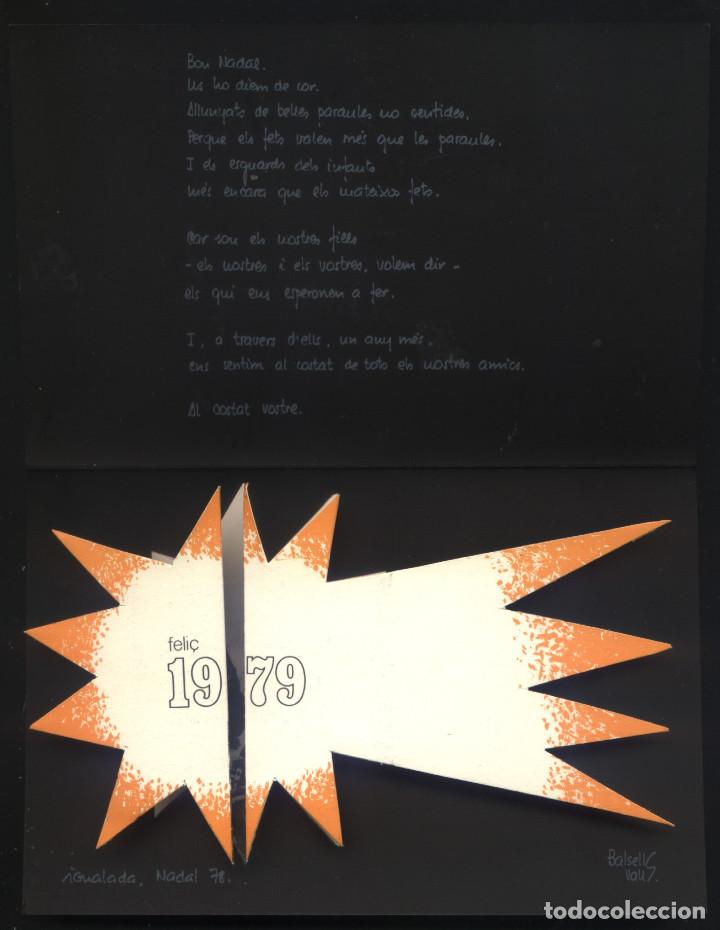 Bon Nadal.
Us ho diem de cor.
Allunyats de belles paraules no sentides.
Perque els fets valen més que les paraules.
I els esguards dels infants
més encara que els mateixos fets.
Car son els nostres fills
- els nostres i els vostres, volem dir -
els qui ens esperonen a fer.
I, a travers d'ells, un any més,
ens sentim al costat de tots els nostres amics.
Al costat vostre.
feliç
1979
igualada, Nadal 78.
Balsells
Valls.
todocoleccion